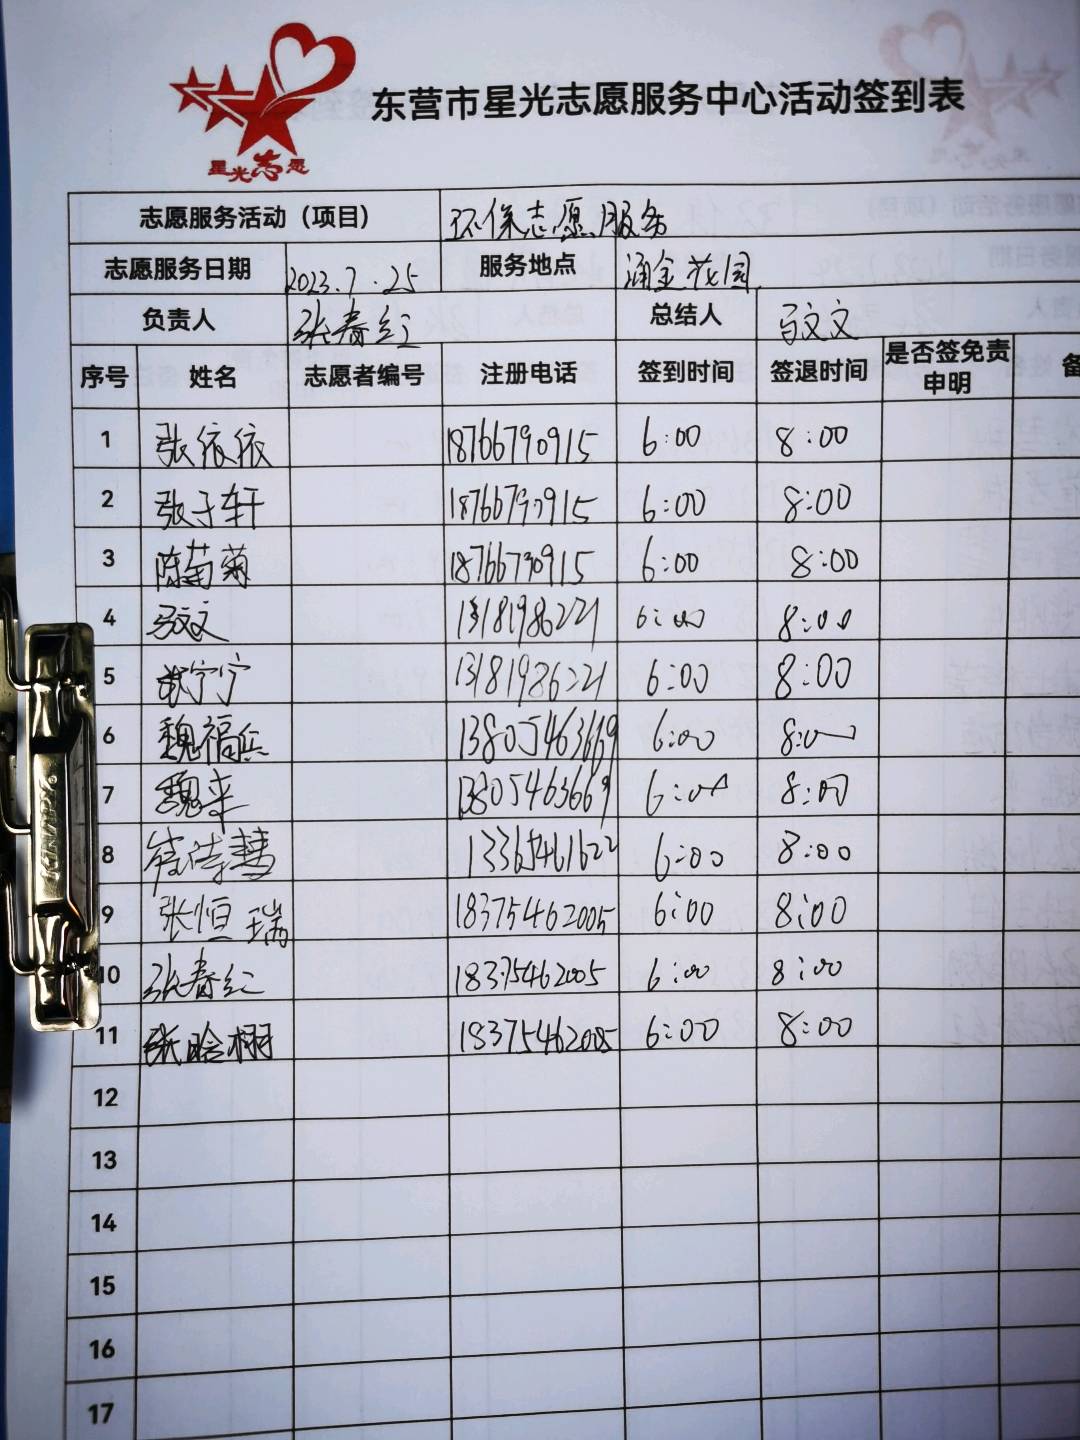 星光志愿
东营市星光志愿服务中心活动签到表
志愿服务活动（项目） 环保志愿服务
志愿服务日期 2023.7.25 服务地点 涌金花园
负责人 张春红 总结人 马文文
序号 姓名 志愿者编号 注册电话 签到时间 签退时间 是否签免责申明 备
1 张依依 18766790915 6:00 8:00
2 张子轩 18766790915 6:00 8:00
3 陈苗菊 18766790915 6:00 8:00
4 马文文 13181986221 6:00 8:00
5 宁宁 13181986221 6:00 8:00
6 魏福兵 13805463669 6:00 8:00
7 魏来 13805463669 6:00 8:00
8 崔诗慧 13365461622 6:00 8:00
9 张恒瑞 18375462005 6:00 8:00
10 张春红 18375462005 6:00 8:00
11 张晗栩 18375462005 6:00 8:00
12
13
14
15
16
17